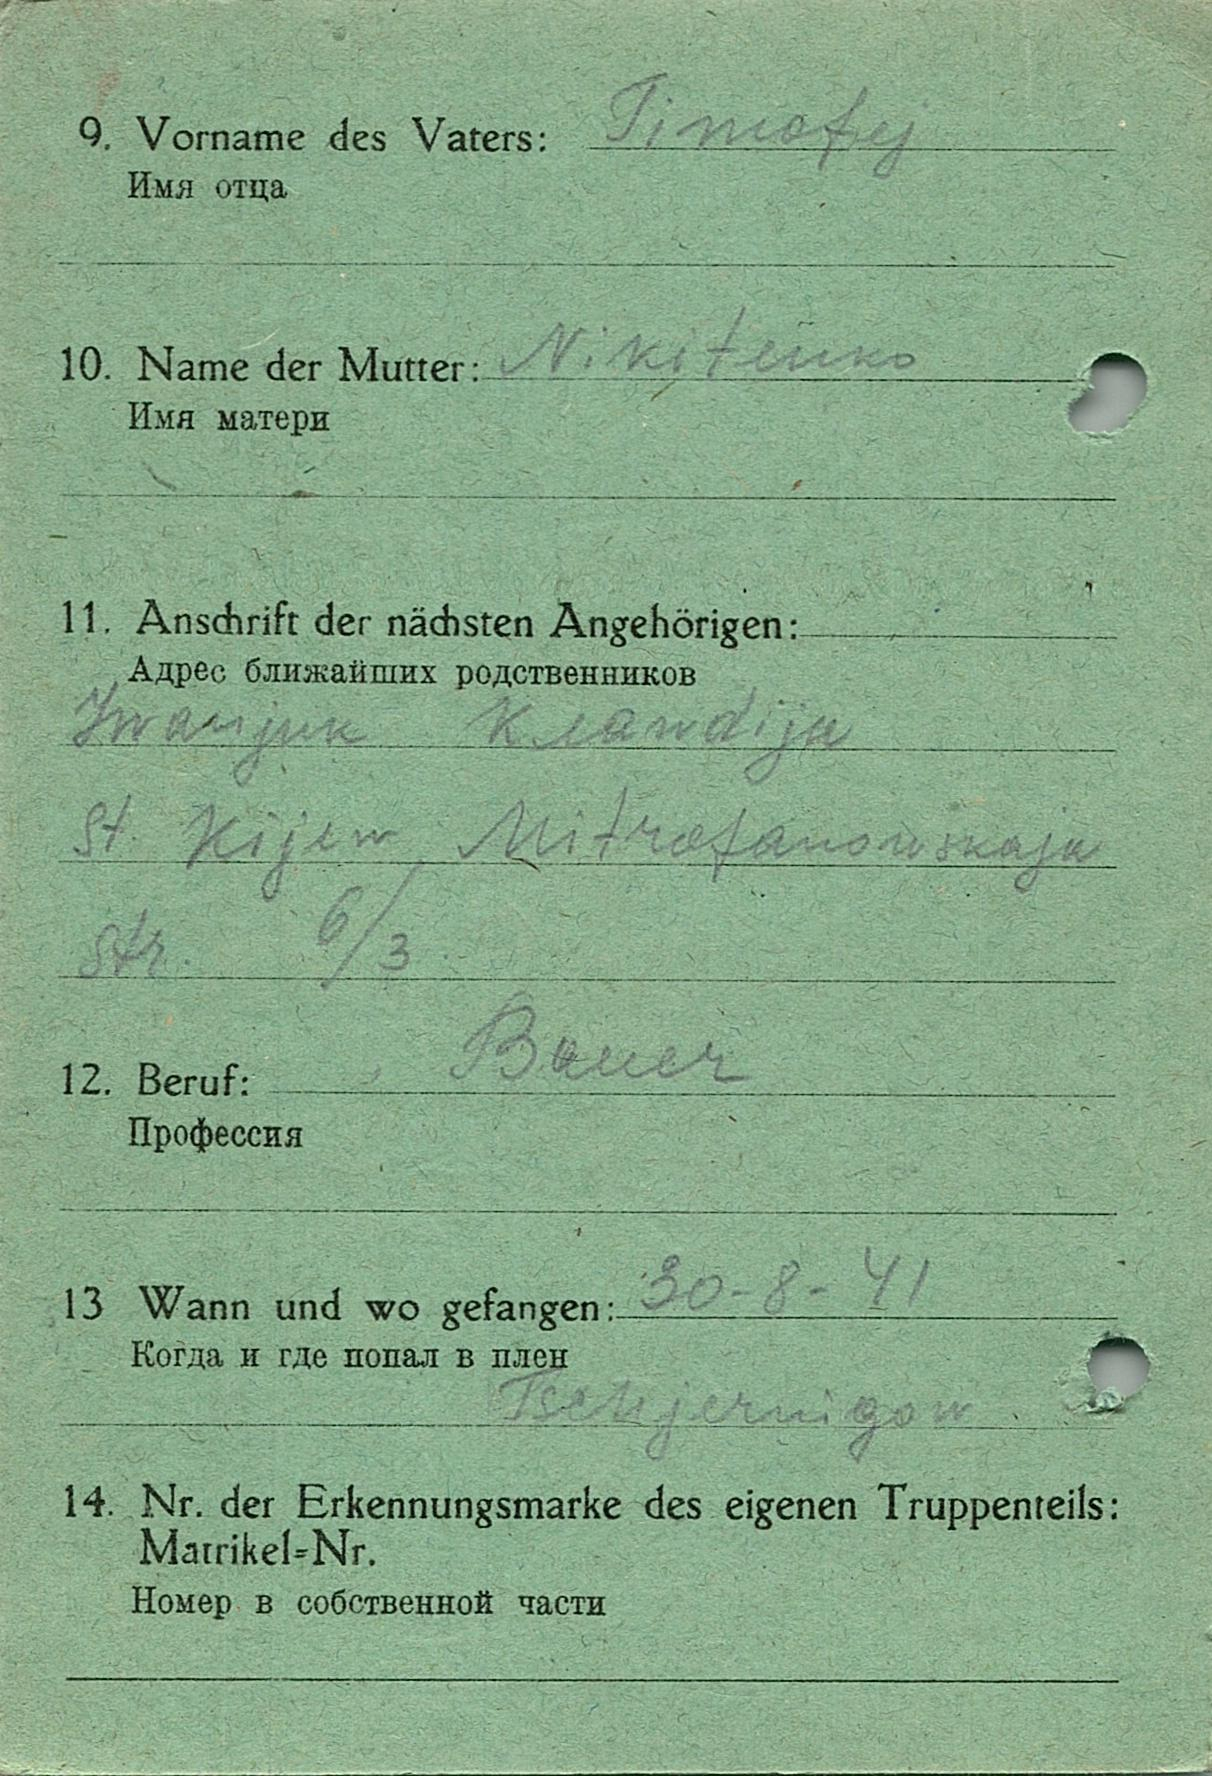 9. Vorname des Vaters: Timofej
Имя отца
10. Name der Mutter: Nikitenko
Имя матери
11. Anschrift der nächsten Angehörigen:
Адрес ближайших родственников
Iwanjuk Klawdija
St. Kijew, Mitrofanowskaja
Str. 6/3.
12. Beruf: Bauer
Профессия
13 Wann und wo gefangen: 30-8-41
Когда и где попал в плен
Tschjernigow
14. Nr. der Erkennungsmarke des eigenen Truppenteils:
Matrikel=Nr.
Номер в собственной части